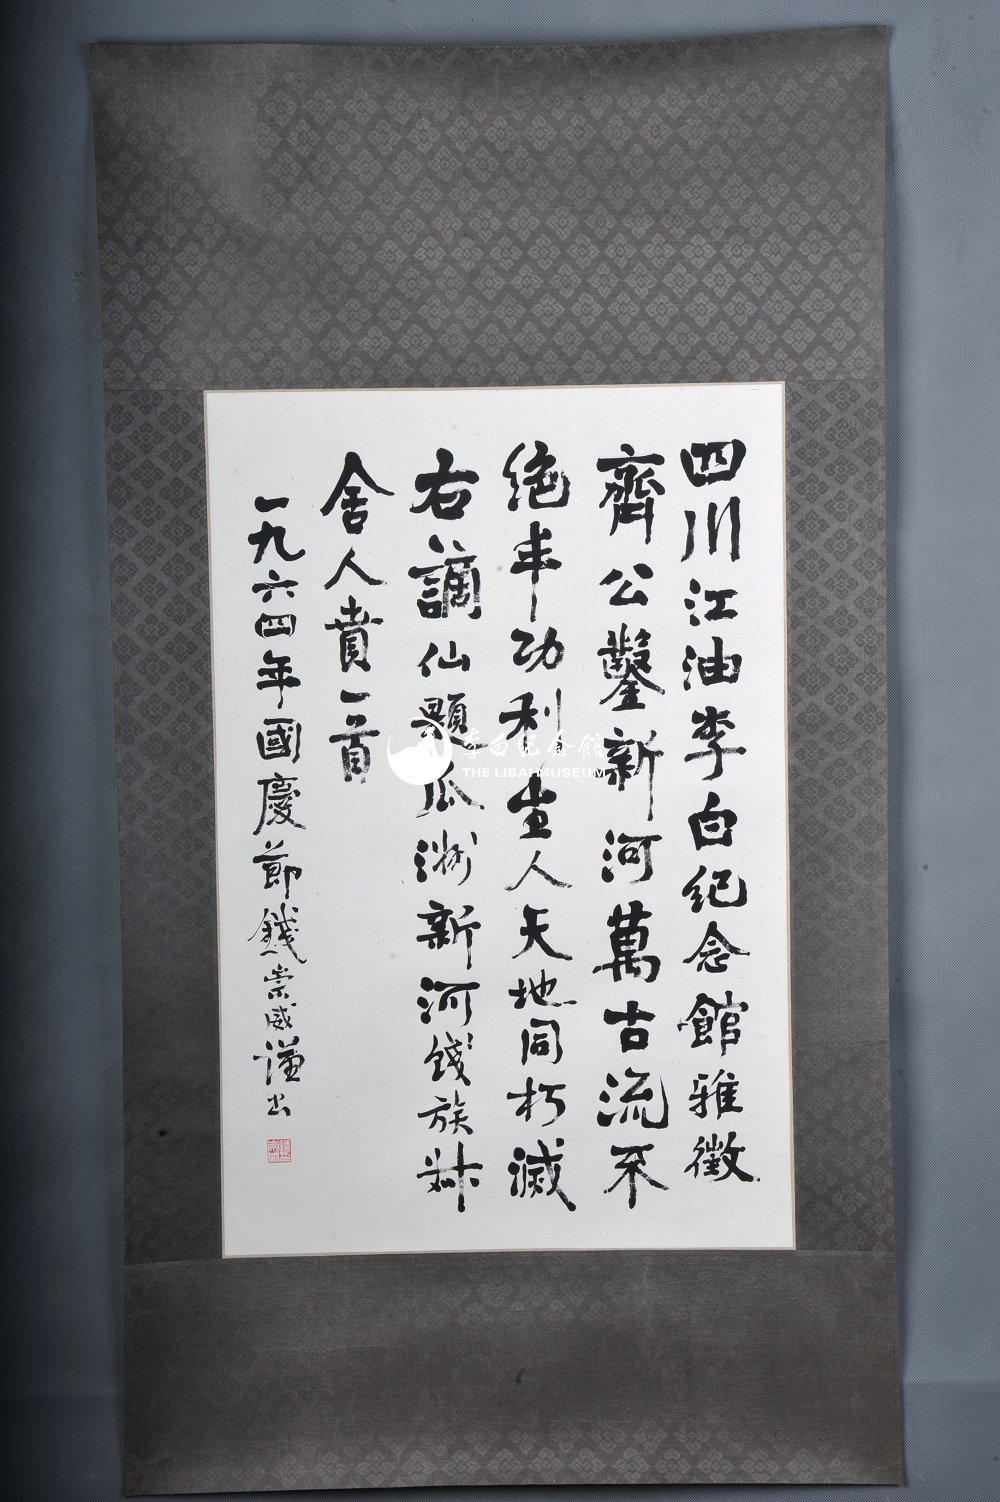 四川江油李白紀念館雅徵
齊公鑿新河萬古流不
絕丰功利生人天地同朽滅
右謫仙題瓜洲新河餞族叔
舍人賁一首
一九六四年國慶節錢崇威謹书
李白纪念館
THE LIBAI MUSEUM